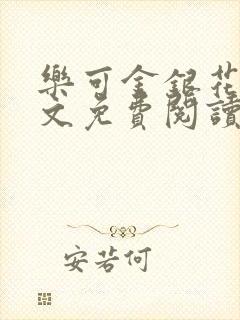 樂可金銀花
文免費閱讀
安若何